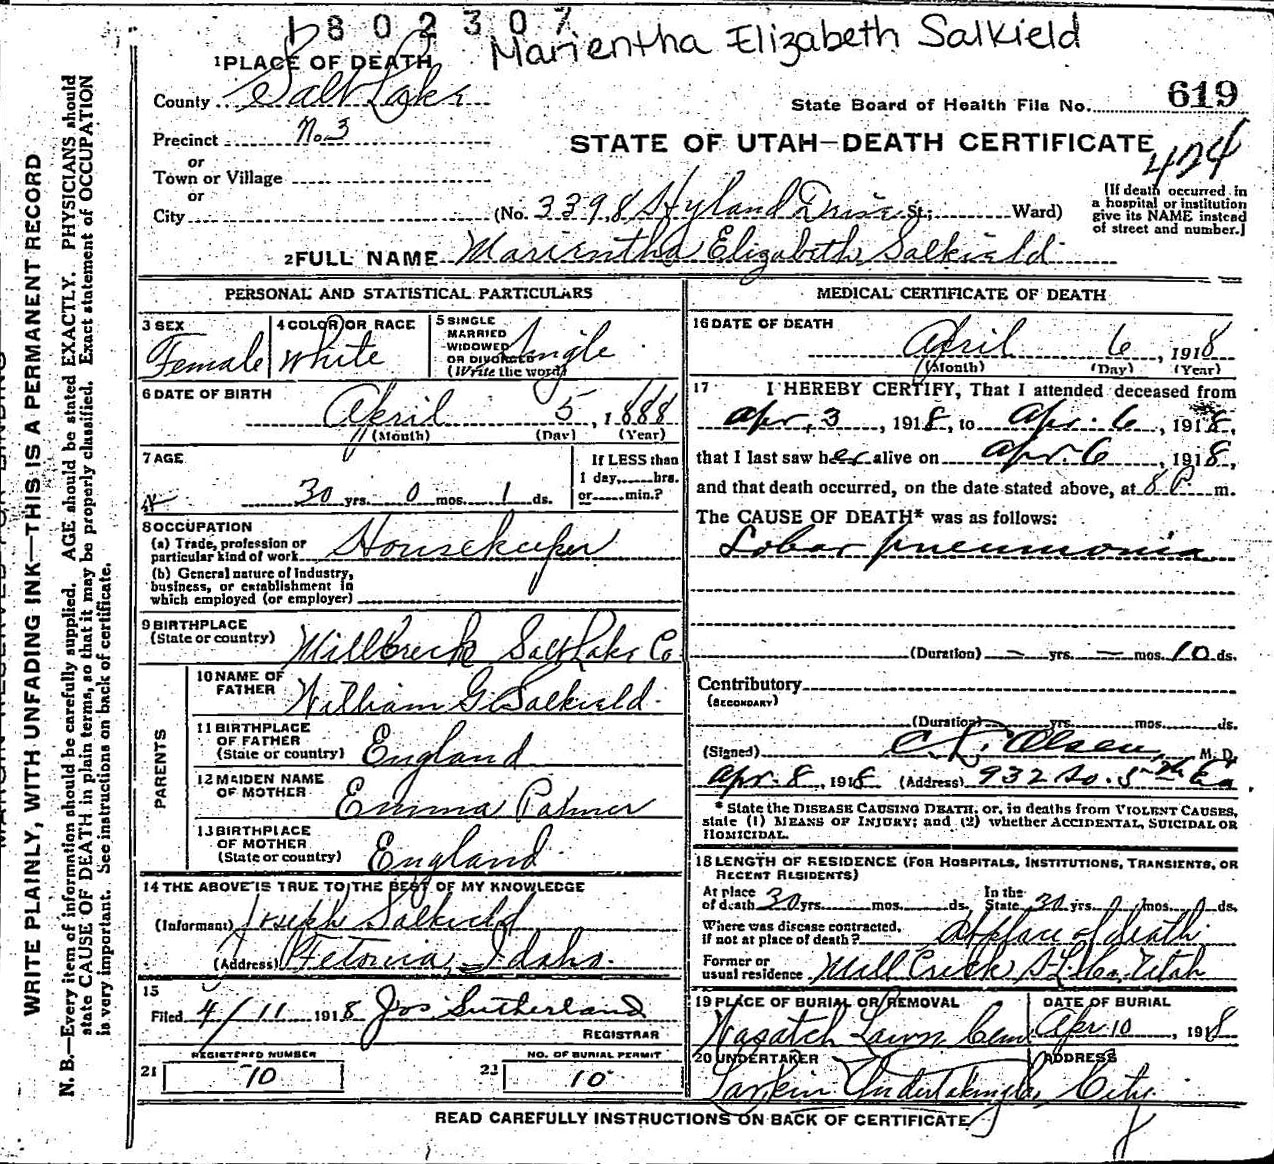 1802307
Marientha Elizabeth Salkield
1 PLACE OF DEATH
County Salt Lake
State Board of Health File No. 619
Precinct No. 3
STATE OF UTAH—DEATH CERTIFICATE
424
or
Town or Village
or
City (No. 3398 Hyland Drive St; Ward)
[If death occurred in
a hospital or institution
give its NAME instead
of street and number.]
2 FULL NAME Marientha Elizabeth Salkield
PERSONAL AND STATISTICAL PARTICULARS
3 SEX
Female
4 COLOR OR RACE
White
5 SINGLE
MARRIED
WIDOWED
OR DIVORCED
(Write the word)
Single
6 DATE OF BIRTH
April 5, 1888
(Month) (Day) (Year)
7 AGE
30 yrs. 0 mos. 1 ds.
If LESS than
1 day, hrs.
or min.?
8 OCCUPATION
(a) Trade, profession or
particular kind of work Housekeeper
(b) General nature of industry,
business, or establishment in
which employed (or employer)
9 BIRTHPLACE
(State or country) Millcreek Salt Lake Co
PARENTS
10 NAME OF
FATHER William G. Salkield
11 BIRTHPLACE
OF FATHER
(State or country) England
12 MAIDEN NAME
OF MOTHER Emma Palmer
13 BIRTHPLACE
OF MOTHER
(State or country) England
14 THE ABOVE IS TRUE TO THE BEST OF MY KNOWLEDGE
(Informant) Joseph Salkield
(Address) Fetonia, Idaho.
15
Filed 4/11 1918 Jos Sutherland
REGISTRAR
REGISTERED NUMBER
21 10
NO. OF BURIAL PERMIT
10
MEDICAL CERTIFICATE OF DEATH
16 DATE OF DEATH
April 6, 1918
(Month) (Day) (Year)
17 I HEREBY CERTIFY, That I attended deceased from
Apr. 3, 1918, to Apr. 6, 1918,
that I last saw her alive on Apr. 6, 1918,
and that death occurred, on the date stated above, at 8 P. m.
The CAUSE OF DEATH* was as follows:
Lobar pneumonia
(Duration) — yrs. — mos. 10 ds.
Contributory
(SECONDARY)
(Duration) yrs. mos. ds.
(Signed) Olsen, M. D.
Apr. 8, 1918 (Address) 932 So. 5th Ea
* State the DISEASE CAUSING DEATH, or, in deaths from VIOLENT CAUSES,
state (1) MEANS OF INJURY; and (2) whether ACCIDENTAL, SUICIDAL OR
HOMICIDAL.
18 LENGTH OF RESIDENCE (FOR HOSPITALS, INSTITUTIONS, TRANSIENTS, OR
RECENT RESIDENTS)
At place
of death 30 yrs. mos. ds.
In the
State 30 yrs. 0 mos. 0 ds.
Where was disease contracted,
if not at place of death? At place of death
Former or
usual residence Mill Creek S.L. Co. Utah
19 PLACE OF BURIAL OR REMOVAL
Wasatch Lawn Cem
DATE OF BURIAL
Apr 10, 1918
20 UNDERTAKER
Larkin Undertaking Co
ADDRESS
City
READ CAREFULLY INSTRUCTIONS ON BACK OF CERTIFICATE
WRITE PLAINLY, WITH UNFADING INK—THIS IS A PERMANENT RECORD
N. B.—Every item of information should be carefully supplied. AGE should be stated EXACTLY. PHYSICIANS should
state CAUSE OF DEATH in plain terms, so that it may be properly classified. Exact statement of OCCUPATION
is very important. See instructions on back of certificate.